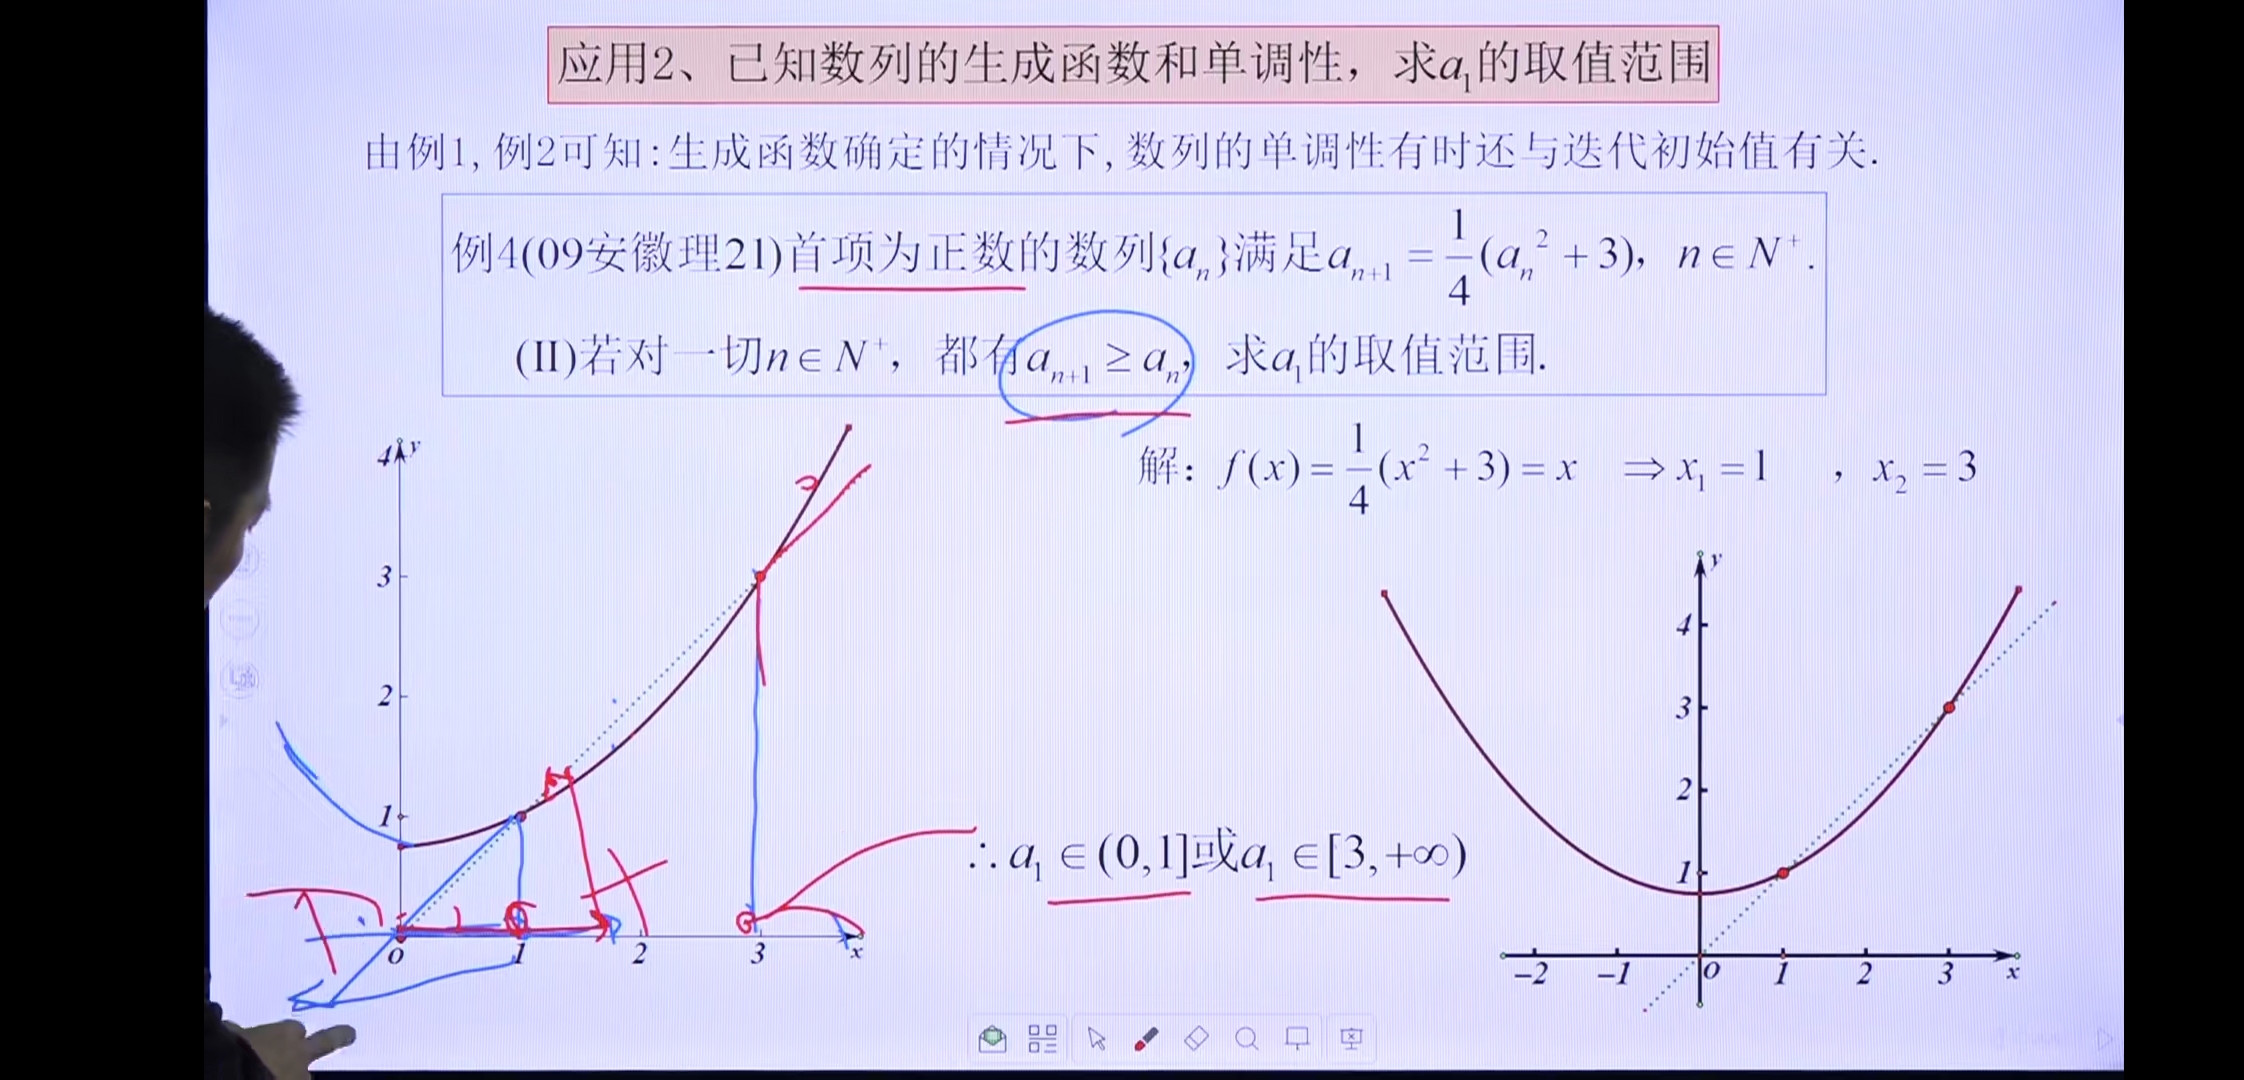 应用2、已知数列的生成函数和单调性，求a₁的取值范围
由例1,例2可知:生成函数确定的情况下,数列的单调性有时还与迭代初始值有关.
例4(09安徽理21)首项为正数的数列{aₙ}满足aₙ₊₁ = 1/4(aₙ² + 3)，n ∈ N⁺.
(II)若对一切n ∈ N⁺，都有aₙ₊₁ ≥ aₙ，求a₁的取值范围.
解：f(x) = 1/4(x² + 3) = x ⇒ x₁ = 1 ，x₂ = 3
4 y
3
2
1
o 1 2 3 x
∴ a₁ ∈ (0,1]或a₁ ∈ [3,+∞)
y
4
3
2
1
−2 −1 o 1 2 3 x